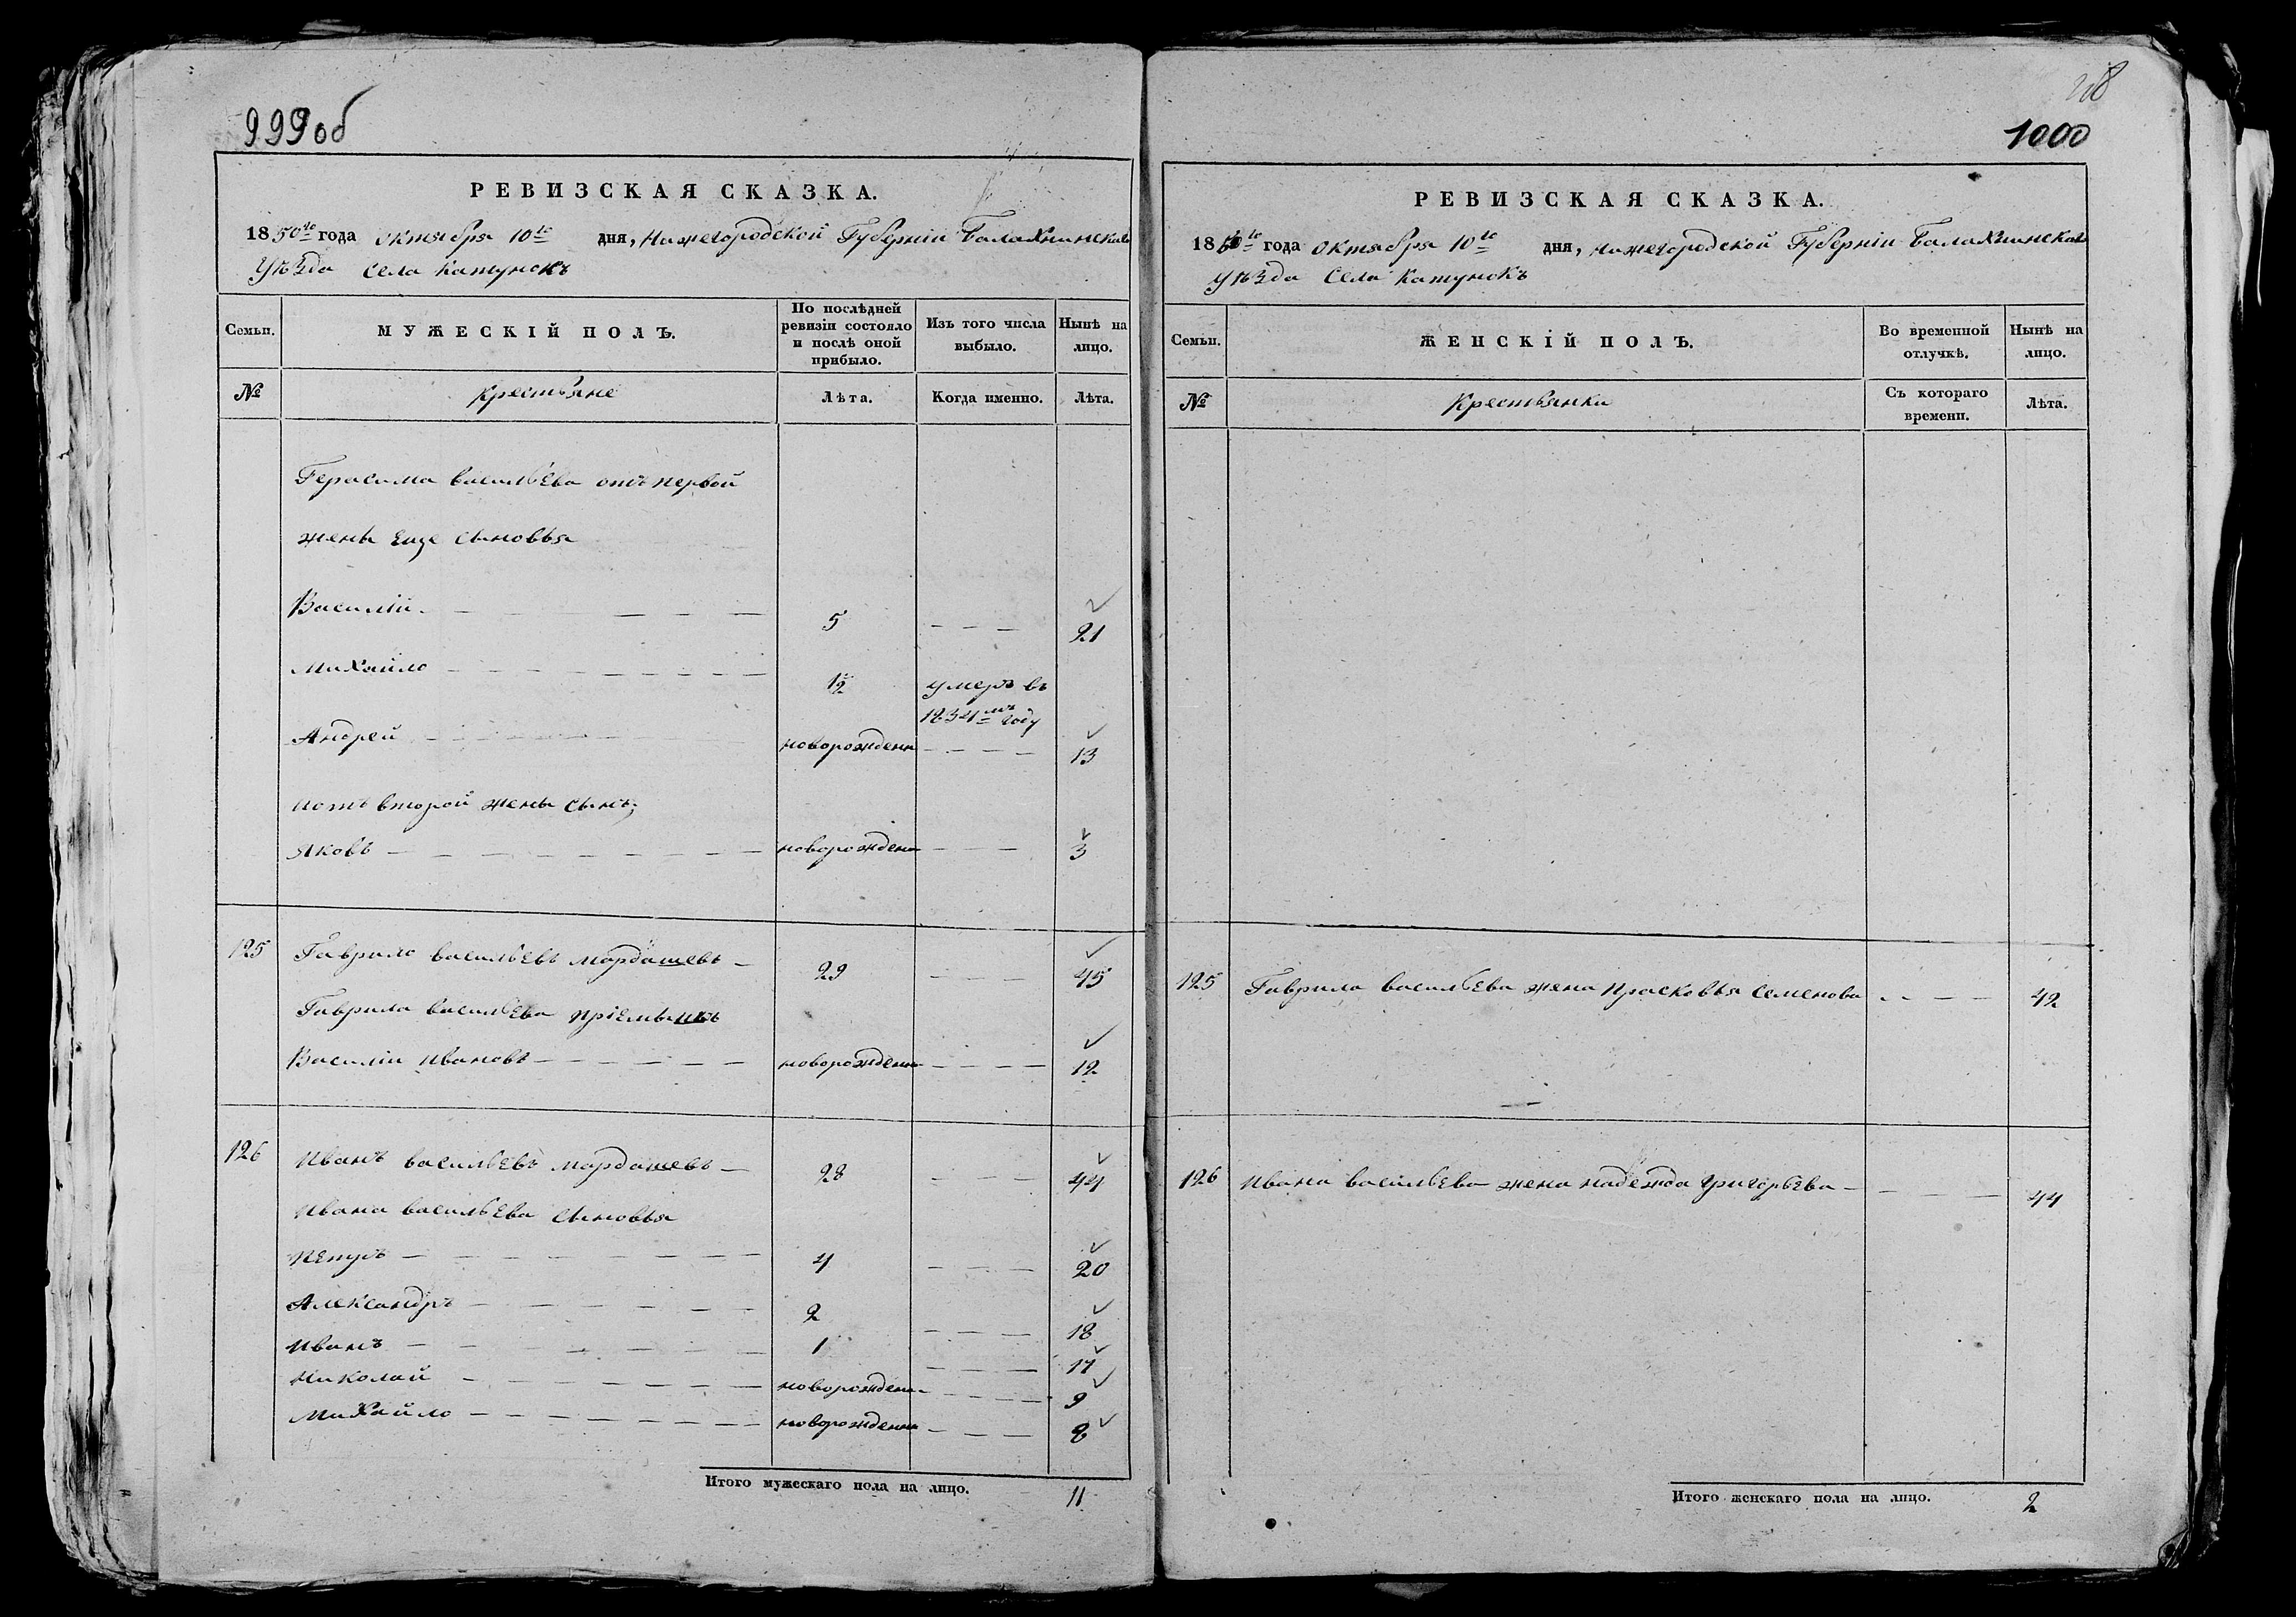 999об
РЕВИЗСКАЯ СКАЗКА.
1850го года октября 10го дня, Нижегородской Губерніи Балахнинскаго
Уѣзда Села Катунокъ
Семьи.
МУЖЕСКІЙ ПОЛЪ.
По послѣдней ревизіи состояло и послѣ оной прибыло.
Изъ того числа выбыло.
Нынѣ на лицо.
№
Крестьяне
Лѣта.
Когда именно.
Лѣта.
Герасима Васильева отъ первой
жены еще сыновья
Василій 5 21
Михайло 1½ умеръ въ
1834мъ году
Андрей новорожденн 13
и отъ второй жены сынъ;
Яковъ новорожден 3
125 Гаврило Васильевъ Мардашевъ 29 45
Гаврила Васильева пріемышъ
Василіи Ивановъ новорожденн 12
126 Иванъ Васильевъ Мардашевъ 28 44
Ивана Васильева сыновья
Петръ 4 20
Александръ 2 18
Иванъ 1 17
Николай новорожден 9
Михайло новорожденн 8
Итого мужескаго пола на лицо. 11
1000
РЕВИЗСКАЯ СКАЗКА.
1850го года октября 10го дня, Нижегородской Губерніи Балахнинскаго
Уѣзда Села Катунокъ
Семьи.
ЖЕНСКІЙ ПОЛЪ.
Во временной отлучкѣ.
Нынѣ на лицо.
№
Крестьянки
Съ котораго времени.
Лѣта.
125 Гаврила Васильева жена Прасковья Семенова 42
126 Ивана Васильева жена Надежда Григорьева 44
Итого женскаго пола на лицо. 2